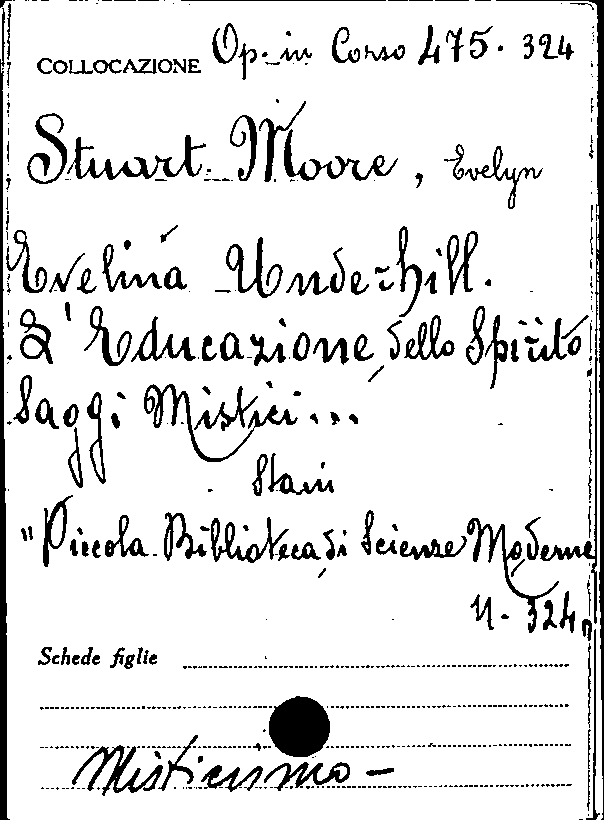 COLLOCAZIONE Op. in Corso 475. 324
Stuart. Moore, Evelyn
Evelina Underhill.
L'Educazione dello Spirito
Saggi Mistici...
Stani
"Piccola Biblioteca di Scienze Moderne
N. 324"
Schede figlie
Misticismo -